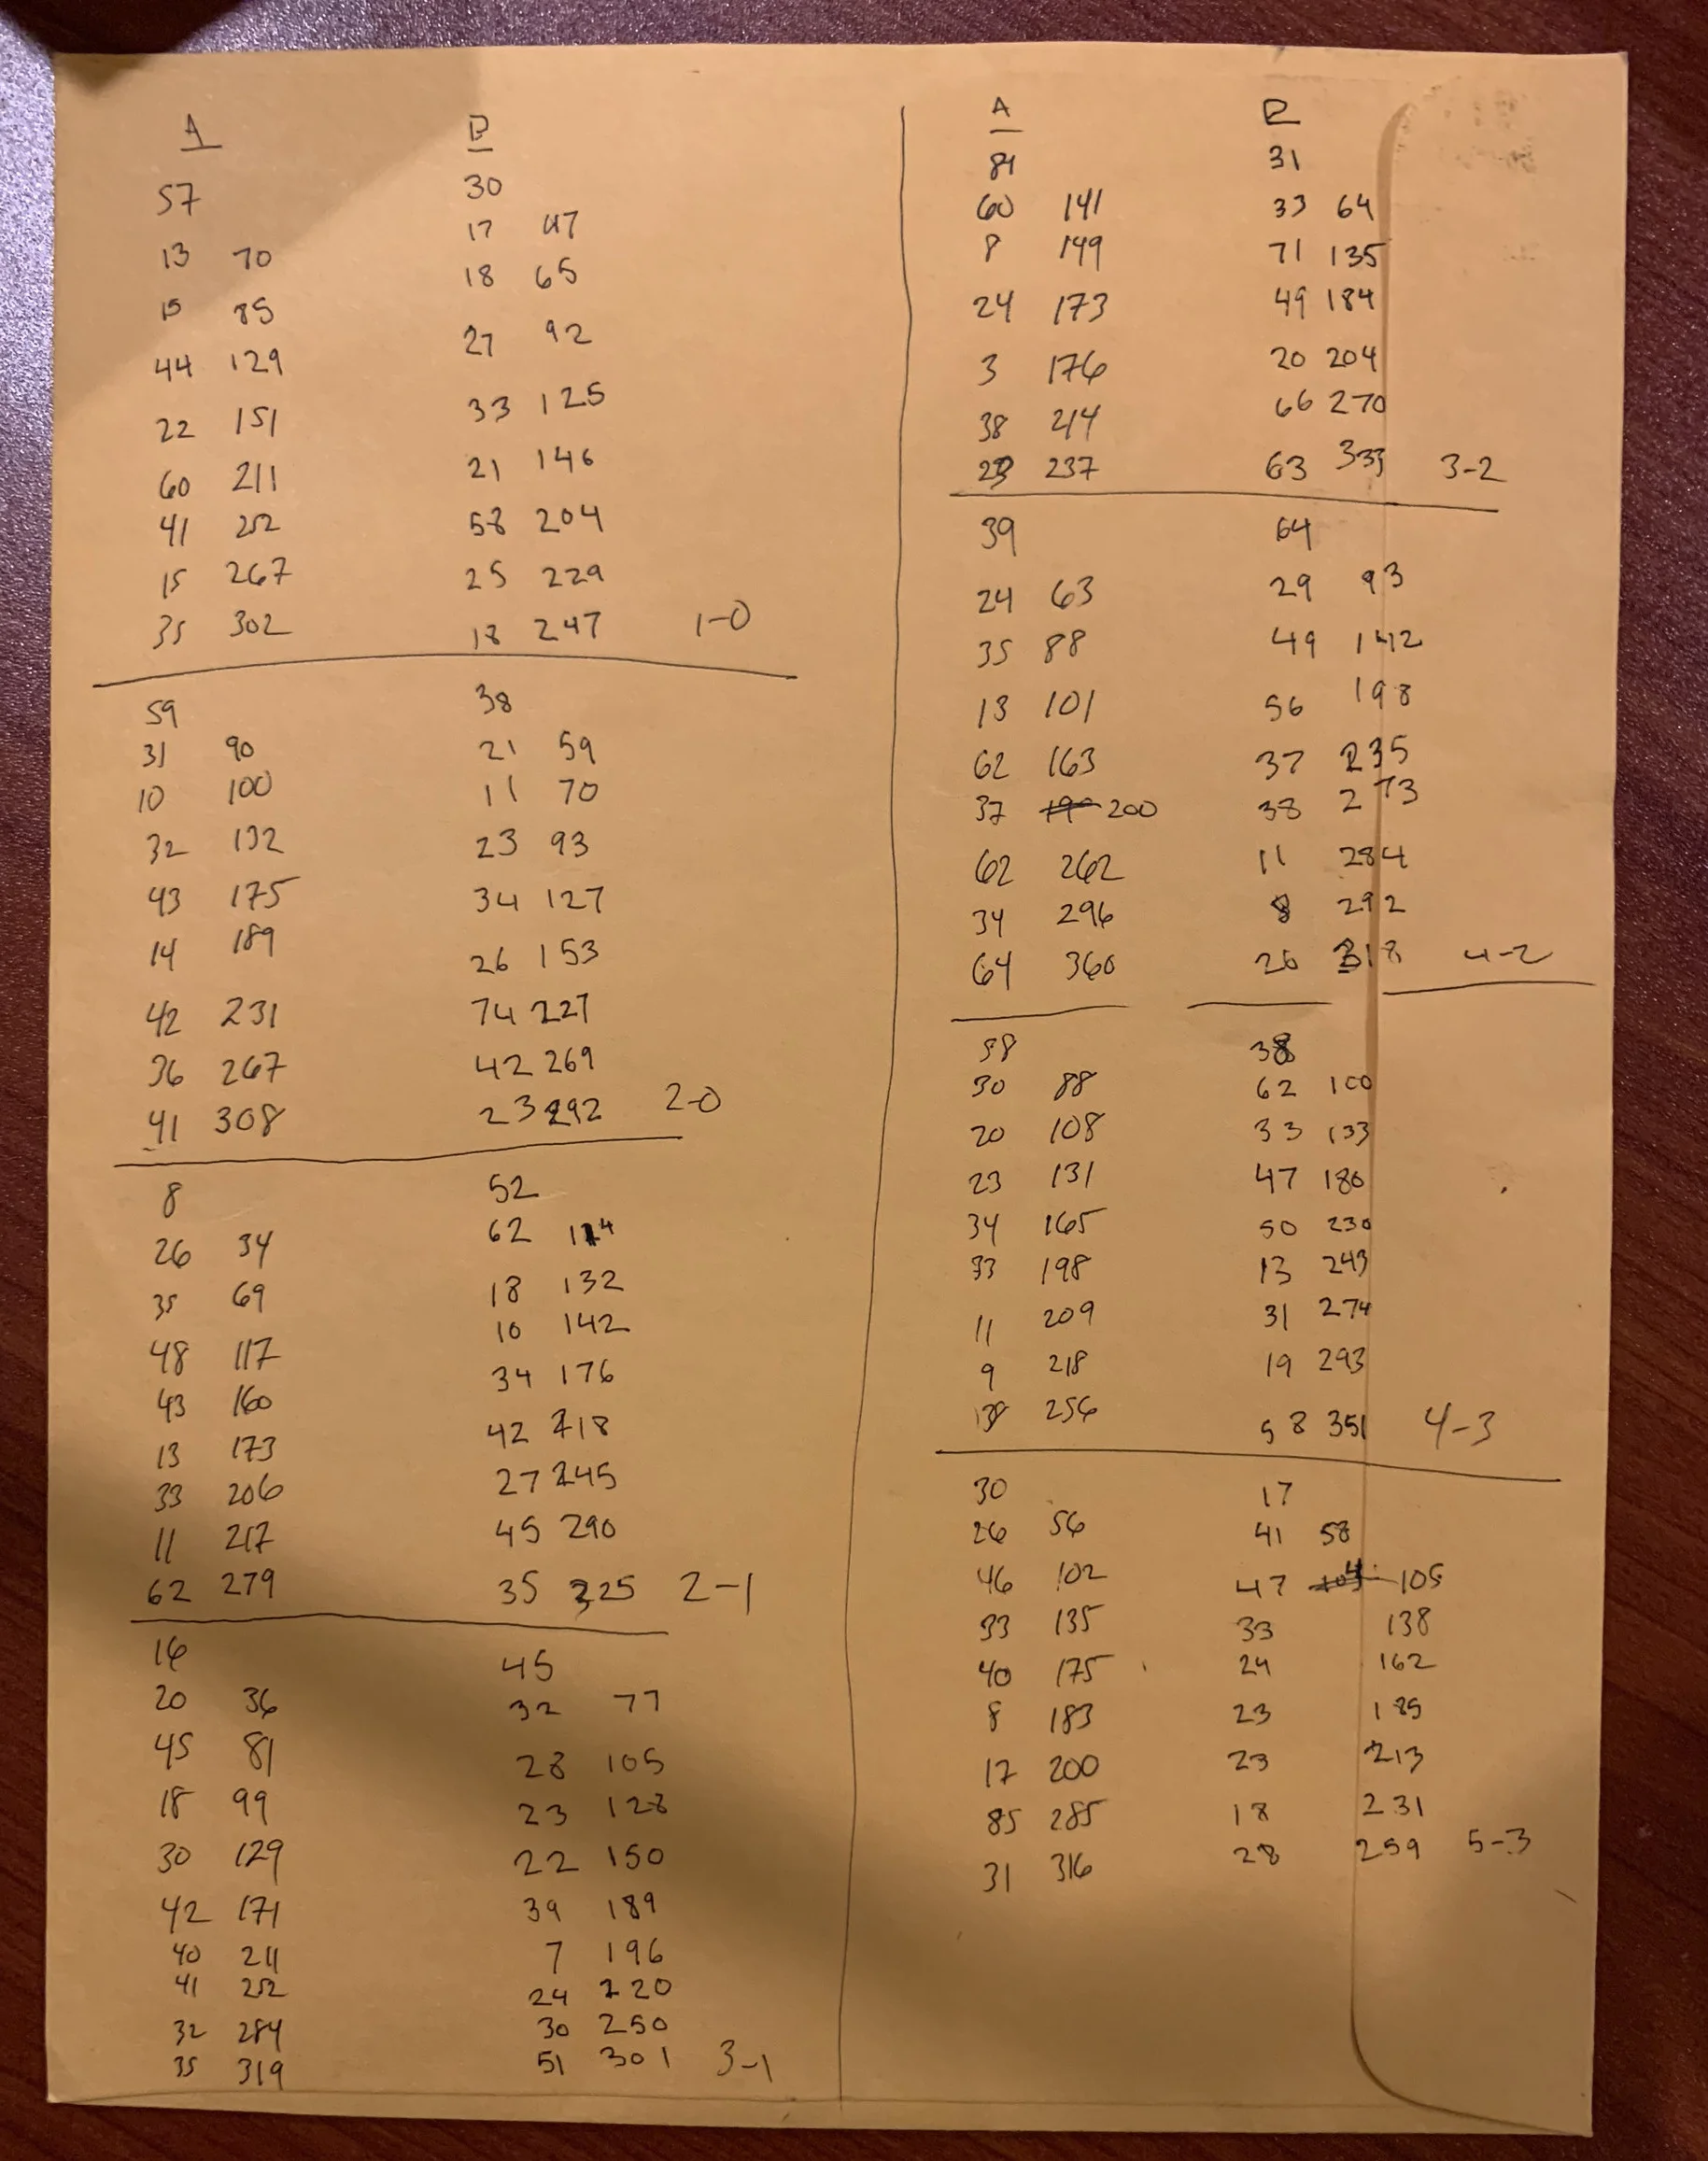 A B
57 30
13 70 17 47
15 85 18 65
44 129 27 92
22 151 33 125
60 211 21 146
41 252 58 204
15 267 25 229
35 302 18 247 1-0
59 38
31 90 21 59
10 100 11 70
32 132 23 93
43 175 34 127
14 189 26 153
42 231 74 227
36 267 42 269
41 308 23 292 2-0
8 52
26 34 62 114
35 69 18 132
48 117 10 142
43 160 34 176
13 173 42 218
33 206 27 245
11 217 45 290
62 279 35 325 2-1
16 45
20 36 32 77
45 81 28 105
18 99 23 128
30 129 22 150
42 171 39 189
40 211 7 196
41 252 24 220
32 284 30 250
35 319 51 301 3-1
A B
81 31
60 141 33 64
8 149 71 135
24 173 49 184
3 176 20 204
38 214 66 270
23 237 63 333 3-2
39 64
24 63 29 93
35 88 49 142
13 101 56 198
62 163 37 235
37 200 38 273
62 262 11 284
34 296 8 292
64 360 26 318 4-2
58 38
30 88 62 100
20 108 33 133
23 131 47 180
34 165 50 230
33 198 13 243
11 209 31 274
9 218 19 293
38 256 58 351 4-3
30 17
26 56 41 58
46 102 47 105
33 135 33 138
40 175 24 162
8 183 23 185
17 200 23 213
85 285 18 231
31 316 28 259 5-3